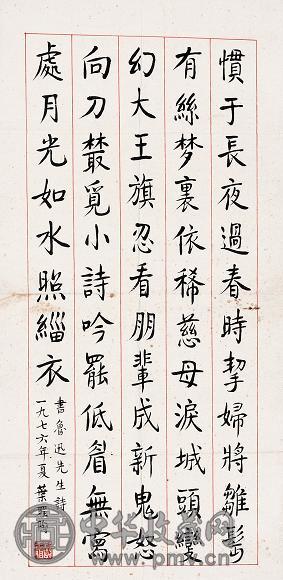 慣于長夜過春時挈婦將雛鬢
有絲梦裏依稀慈母淚城頭變
幻大王旗忍看朋輩成新鬼怒
向刀叢覓小詩吟罷低眉無寫
處月光如水照緇衣
書魯迅先生詩
一九七六年夏 葉聖陶
中华收藏网
www.pmv.cn